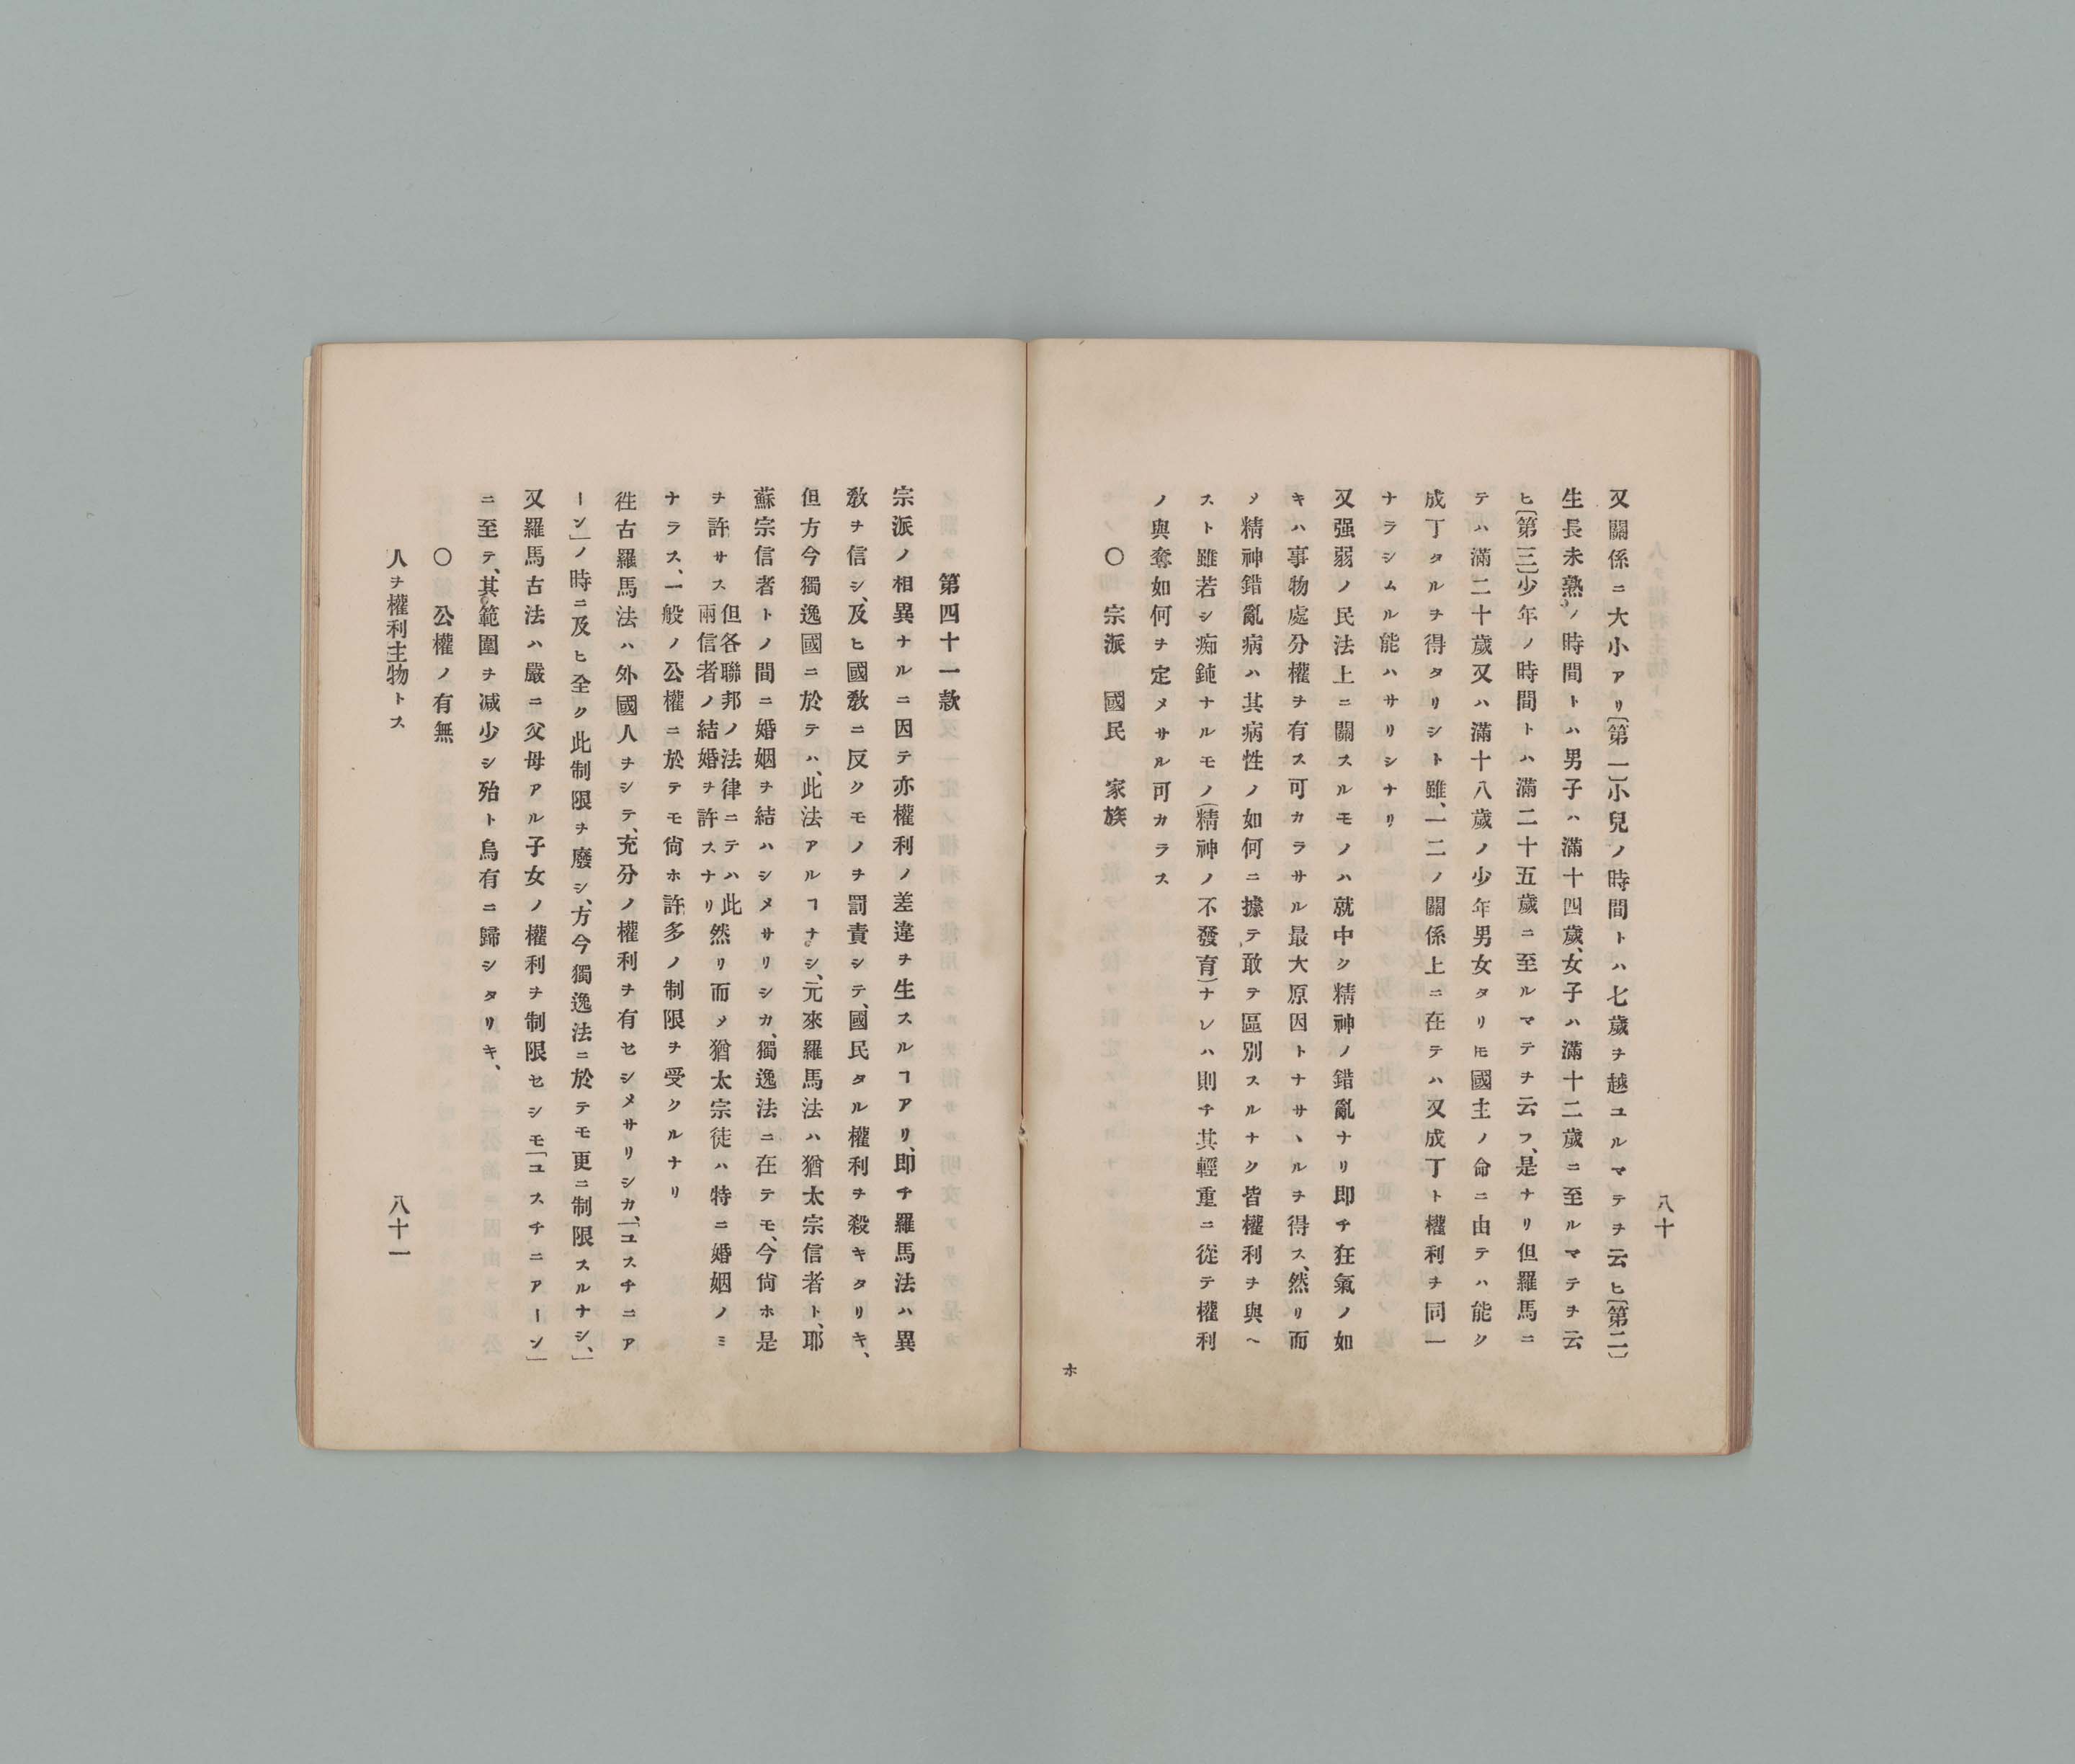 八十
又關係ニ大小アリ〔第一〕小兒ノ時間トハ七歲ヲ越ユルマテヲ云ヒ〔第二〕
生長未熟ノ時間トハ男子ハ滿十四歲、女子ハ滿十二歲ニ至ルマテヲ云
ヒ〔第三〕少年ノ時間トハ滿二十五歲ニ至ルマテヲ云フ、是ナリ但羅馬ニ
テハ滿二十歲又ハ滿十八歲ノ少年男女タリ𪜈國主ノ命ニ由テハ能ク
成丁タルヲ得タリシト雖、一二ノ關係上ニ在テハ又成丁ト權利ヲ同一
ナラシムル能ハサリシナリ
又强弱ノ民法上ニ關スルモノハ就中ク精神ノ錯亂ナリ即チ狂氣ノ如
キハ事物處分權ヲ有ス可カラサル最大原因トナサヽルヲ得ス、然リ而
〆精神錯亂病ハ其病性ノ如何ニ據テ敢テ區別スルナク皆權利ヲ與ヘ
スト雖若シ痴鈍ナルモノ(精神ノ不發育)ナレハ則チ其輕重ニ從テ權利
ノ與奪如何ヲ定メサル可カラス
〇宗派 國民 家族
ホ
第四十一款
宗派ノ相異ナルニ因テ亦權利ノ差違ヲ生スルヿアリ、即チ羅馬法ハ異
敎ヲ信シ、及ヒ國敎ニ反クモノヲ罰責シテ、國民タル權利ヲ殺キタリキ、
但方今獨逸國ニ於テハ、此法アルヿナシ、元來羅馬法ハ猶太宗信者ト、耶
蘇宗信者トノ間ニ婚姻ヲ結ハシメサリシカ、獨逸法ニ在テモ、今尙ホ是
ヲ許サス但各聯邦ノ法律ニテハ此兩信者ノ結婚ヲ許スナリ然リ而〆猶太宗徒ハ特ニ婚姻ノミ
ナラス、一般ノ公權ニ於テモ尙ホ許多ノ制限ヲ受クルナリ
徃古羅馬法ハ外國人ヲシテ、充分ノ權利ヲ有セシメサリシカ、「ユスチニア
ーン」ノ時ニ及ヒ全ク此制限ヲ廢シ、方今獨逸法ニ於テモ更ニ制限スルナシ、」
又羅馬古法ハ嚴ニ父母アル子女ノ權利ヲ制限セシモ「ユスチニアーン」
ニ至テ、其範圍ヲ减少シ殆ト烏有ニ歸シタリキ、
〇公權ノ有無
人ヲ權利主物トス
八十一